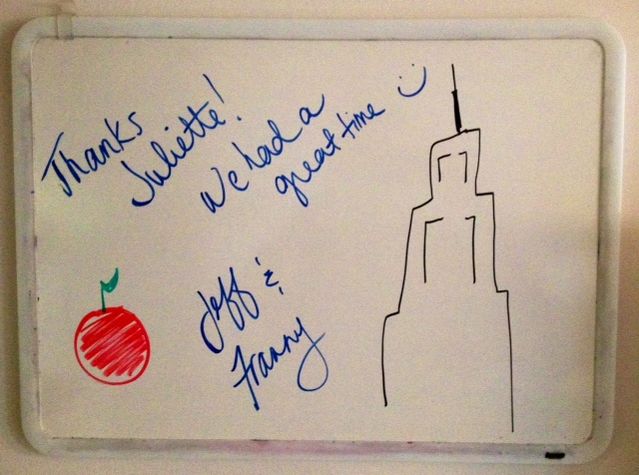 Thanks
Juliette!
We had a
great time :)
Jeff &
Franny